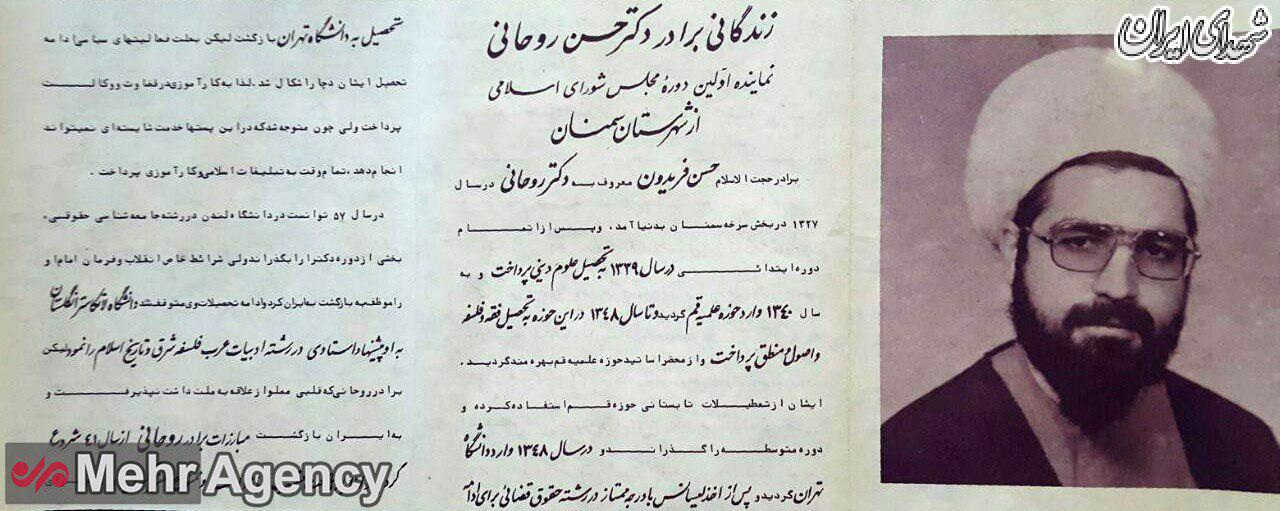 شهدای ایران
زندگانی برادر دکتر حسن روحانی
نماینده اولین دورهٔ مجلس شورای اسلامی
از شهرستان سمنان
برادر حجت الاسلام حسن فریدون معروف به دکتر روحانی در سال
۱۳۲۷ در بخش سرخه سمنان بدنیا آمد. و پس از اتمام
دوره ابتدائی در سال ۱۳۳۹ به تحصیل علوم دینی پرداخت و به
سال ۱۳۴۰ وارد حوزه علمیه قم گردید و تا سال ۱۳۴۸ در این حوزه به تحصیل فقه و فلسفه
و اصول و منطق پرداخت و از محضر اساتید حوزه علمیه قم بهره مند گردید.
ایشان از تعطیلات تابستانی حوزه قم استفاده کرده و
دوره متوسطه را گذراند و در سال ۱۳۴۸ وارد دانشگاه
تهران گردید و پس از اخذ لیسانس با درجه ممتاز در رشته حقوق قضائی برای ادامه
تحصیل به دانشگاه تهران بازگشت لیکن بعلت فعالیتهای سیاسی ادامه
تحصیل ایشان دچار اشکال شد. لذا به کارآموزی در قضاوت و وکالت
پرداخت ولی چون متوجه شد که در این پستها خدمت شایسته ای نمیتواند
انجام دهد، تمام وقت به تبلیغات اسلامی و کارآموزی پرداخت.
در سال ۵۷ توانست در دانشگاه لندن در رشته جامعه شناسی حقوقی،
بخشی از دوره دکترا را بگذراند ولی شرائط خاص انقلاب و فرمان امام او
را موظف به بازگشت به ایران کرد و ادامه تحصیلات وی متوقف شد دانشگاه لانکاستر انگلستان
به او پیشنهاد استادی در رشته ادبیات عرب فلسفه شرق و تاریخ اسلام را نمود ولیکن
برادر روحانی که قلبی مملو از علاقه به ملت داشت نپذیرفت و
به ایران بازگشت مبارزات برادر روحانی از سال ۴۱ شروع
Mehr Agency